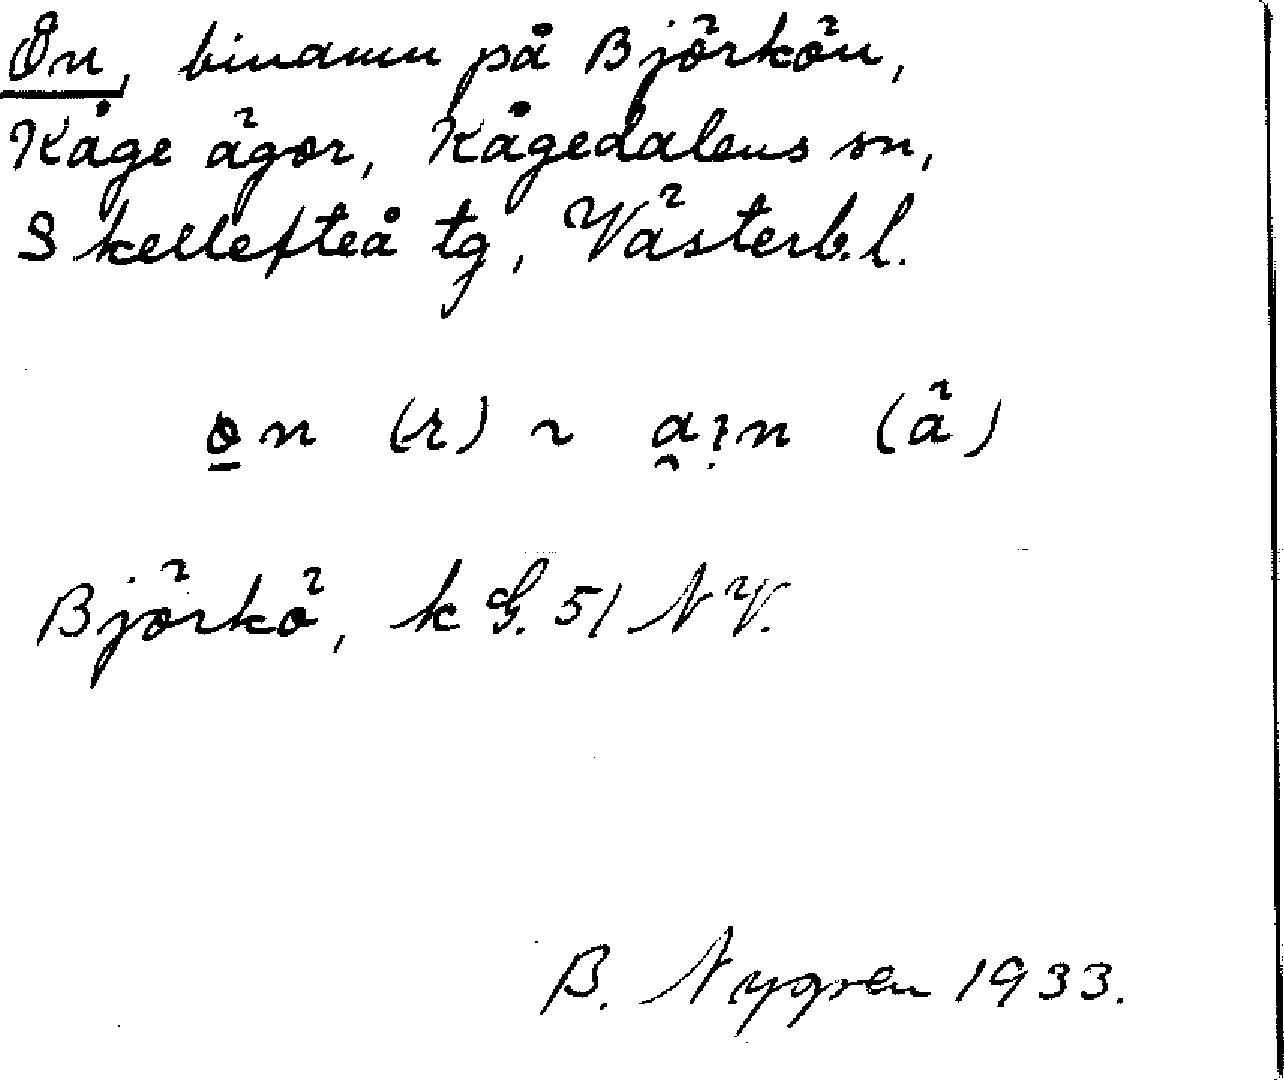 Ön, binamn på Björkön,
Kåge ägor, Kågedalens sn,
Skellefteå tg, Västerb.l.
(ä)
Björkö, k G. 51 NV.
B. Nygren 1933.